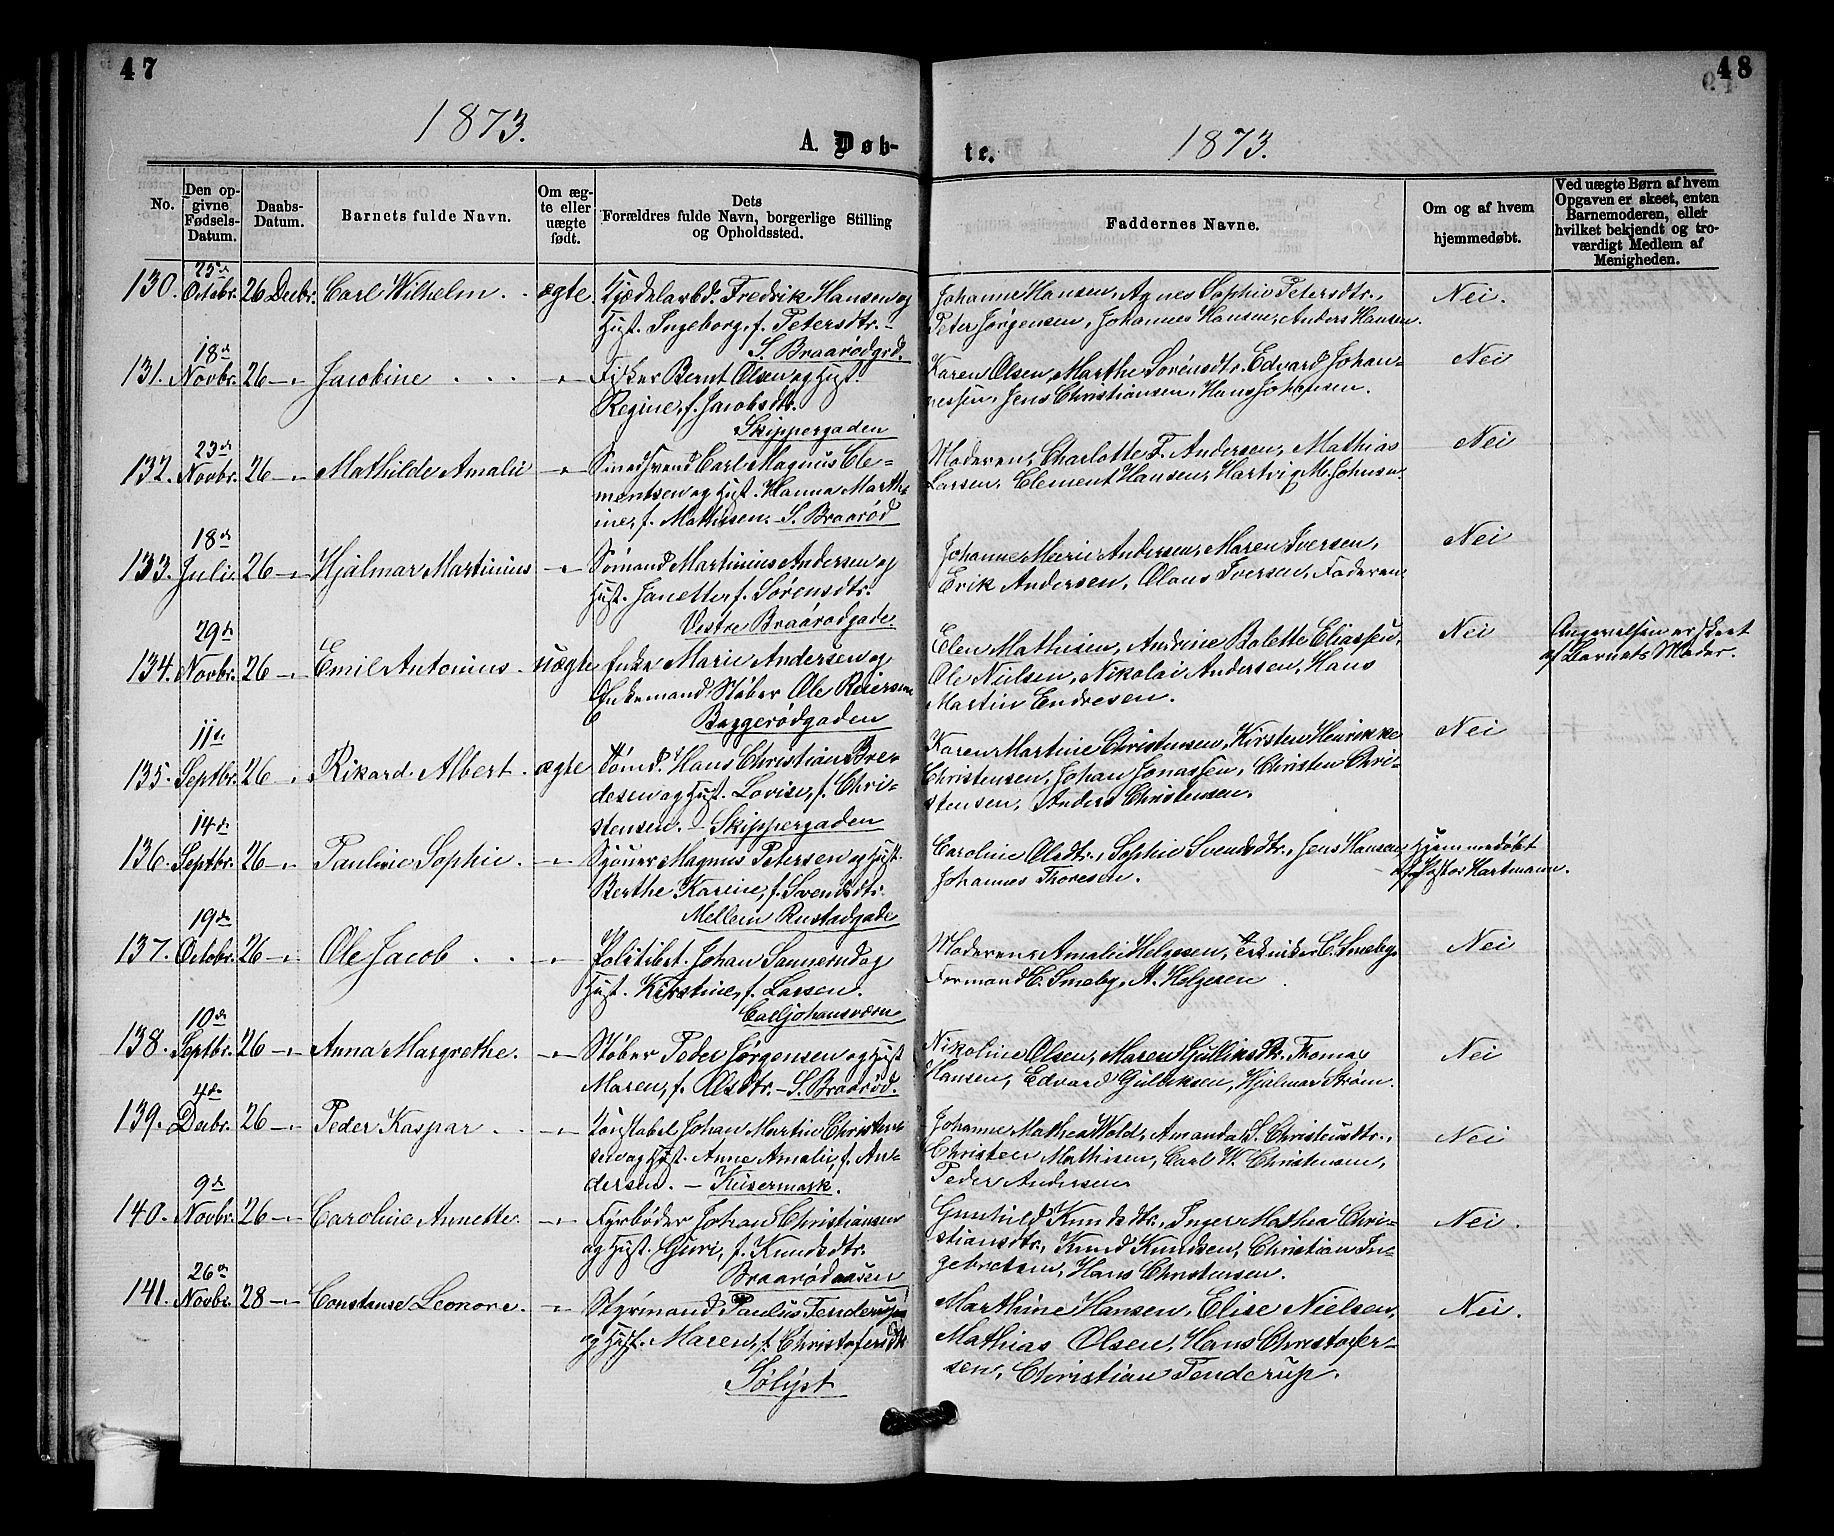 47
48
1873.
A. Døb-
te.
1873.
No.
Den op-
givne
Fødsels-
Datum.
Daabs-
Datum.
Barnets fulde Navn.
Om æg-
te eller
uægte
født.
Dets
Forældres fulde Navn, borgerlige Stilling
og Opholdssted.
Faddernes Navne.
Om og af hvem
hjemmedøbt.
Ved uægte Børn af hvem
Opgaven er skeet, enten
Barnemoderen, eller
hvilket bekjendt og tro-
værdigt Medlem af
Menigheden.
25de
130. Octobr. 26 Decbr. Carl Wilhelm ægte
Fredrik Hansen og
Hust. Ingeborg, f. Petersdtr. -
S. Braarødgd.
Johanne Hansen, Agnes Sophie Petersdtr.,
Peter Jørgensen, Johannes Hansen, Anders Hansen.
Nei.
18de
131. Novbr. 26 -"- Jacobine -"-
Fisker Bernt Olsen og Hust.
Regine, f. Jacobsdtr.
Skippergaden
Karen Olsen, Marthe Sørensdtr. Edvard Johan-
nessen, Jens Christiansen, Hans Johansen.
Nei
23de
132. Novbr. 26 -"- Mathilde Amalie -"-
Smedsvend Carl Magnus Cle-
mentsen og Hust. Hanna Marth-
ine, f. Mathisen. - S. Braarød
Moderen, Charlotte F. Andersen, Mathias
Larsen, Clement Hansen, Hartvig M. Johnsen.
Nei
18de
133. Juli. 26 -"- Hjalmar Martinius -"-
Sømand Martinius Andersen og
Hust. Janette, f. Sørensdtr.
Vestre Braarødgade.
Johanne Marie Andersen, Maren Iversen,
Erik Andersen, Olaus Iversen, Faderen
Nei
29de
134. Novbr. 26 -"- Emil Antonius uægte
Enke Marie Andersen og
Enkemand Støber Ole Reiersen
Baggerødgaden
Elen Mathisen, Andrine Bolette Eliassen,
Ole Nielsen, Nikolai Andersen, Hans
Martin Endresen.
Nei
Angivelsen er skeet
af Barnets Moder.
11de
135. Septbr. 26 -"- Rikard Albert. ægte
Tømd. Hans Christian Bre-
desen og Hust. Lovise, f. Chri-
stensen. - Skippergaden
Karen Martine Christensen, Kirsten Henrikke
Christensen, Johan Jonassen, Christen Chri-
stensen, Anders Christensen.
Nei
14de
136. Septbr. 26 -"- Pauline Sophie. -"-
Sjouer Magnus Petersen og Hust.
Berthe Karine, f. Svendsdtr.
Mellem Rustadgade
Caroline Olsdtr., Sophie Svendsdtr., Jens Hansen,
Johannes Thoresen.
Hjemmedøbt
af Pastor Hartmann.
19de
137. Octobr. 26 -"- Ole Jacob -"-
Politibet. Johan Sannerud og
Hust. Kirstine, f. Larsen.
Carljohansværn
Moderen, Amalie Helgesen, Tekniker C. Smeby,
Formand H. Smeby, A. Helgesen
Nei
10de
138. Septbr. 26 -"- Anna Margrethe. -"-
Støber Peder Jørgensen og Hust
Maren, f. Olsdtr. - S. Braarød.
Nikoline Olsen, Maren Gulliksdtr. Thomas
Hansen, Edvard Gulliksen, Hjalmar Strøm.
Nei
4de
139. Decbr. 26 -"- Peder Kaspar -"-
Konstabel Johan Martin Christen-
sen og Hust. Anne Amalie, f. An-
dersen. - Keisermark.
Johanne Mathea Wold, Amanda S. Christensdtr.,
Christen Mathisen, Carl W. Christensen,
Peder Andersen
Nei
9de
140. Novbr. 26 -"- Caroline Annette -"-
Fyrbøder Johan Christiansen
og Hust. Guri, f. Knudsdtr.
Braarødaasen
Gunhild Knudsdtr., Inger Mathea Chri-
stiansdtr., Knud Knudsen, Christian In-
gebretsen, Hans Christensen.
Nei.
26de
141. Novbr. 28 -"- Constanse Leonore. -"-
Styrmand Paulus Tenderup
og Hust. Maren, f. Christofersdtr
Sølyst
Marthine Hansen, Elise Nielsen,
Mathias Olsen, Hans Christofer-
sen, Christian Tenderup.
Nei.